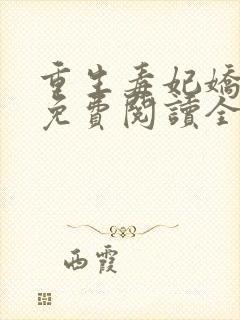 重生毒妃嬌
免費閱讀全
西霞